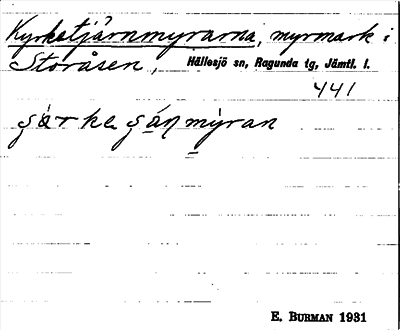 Kyrkotjärnmyrarna, myrmark i
Storåsen, Hällesjö sn, Ragunda tg, Jämtl. l.
441
E. BURMAN 1931